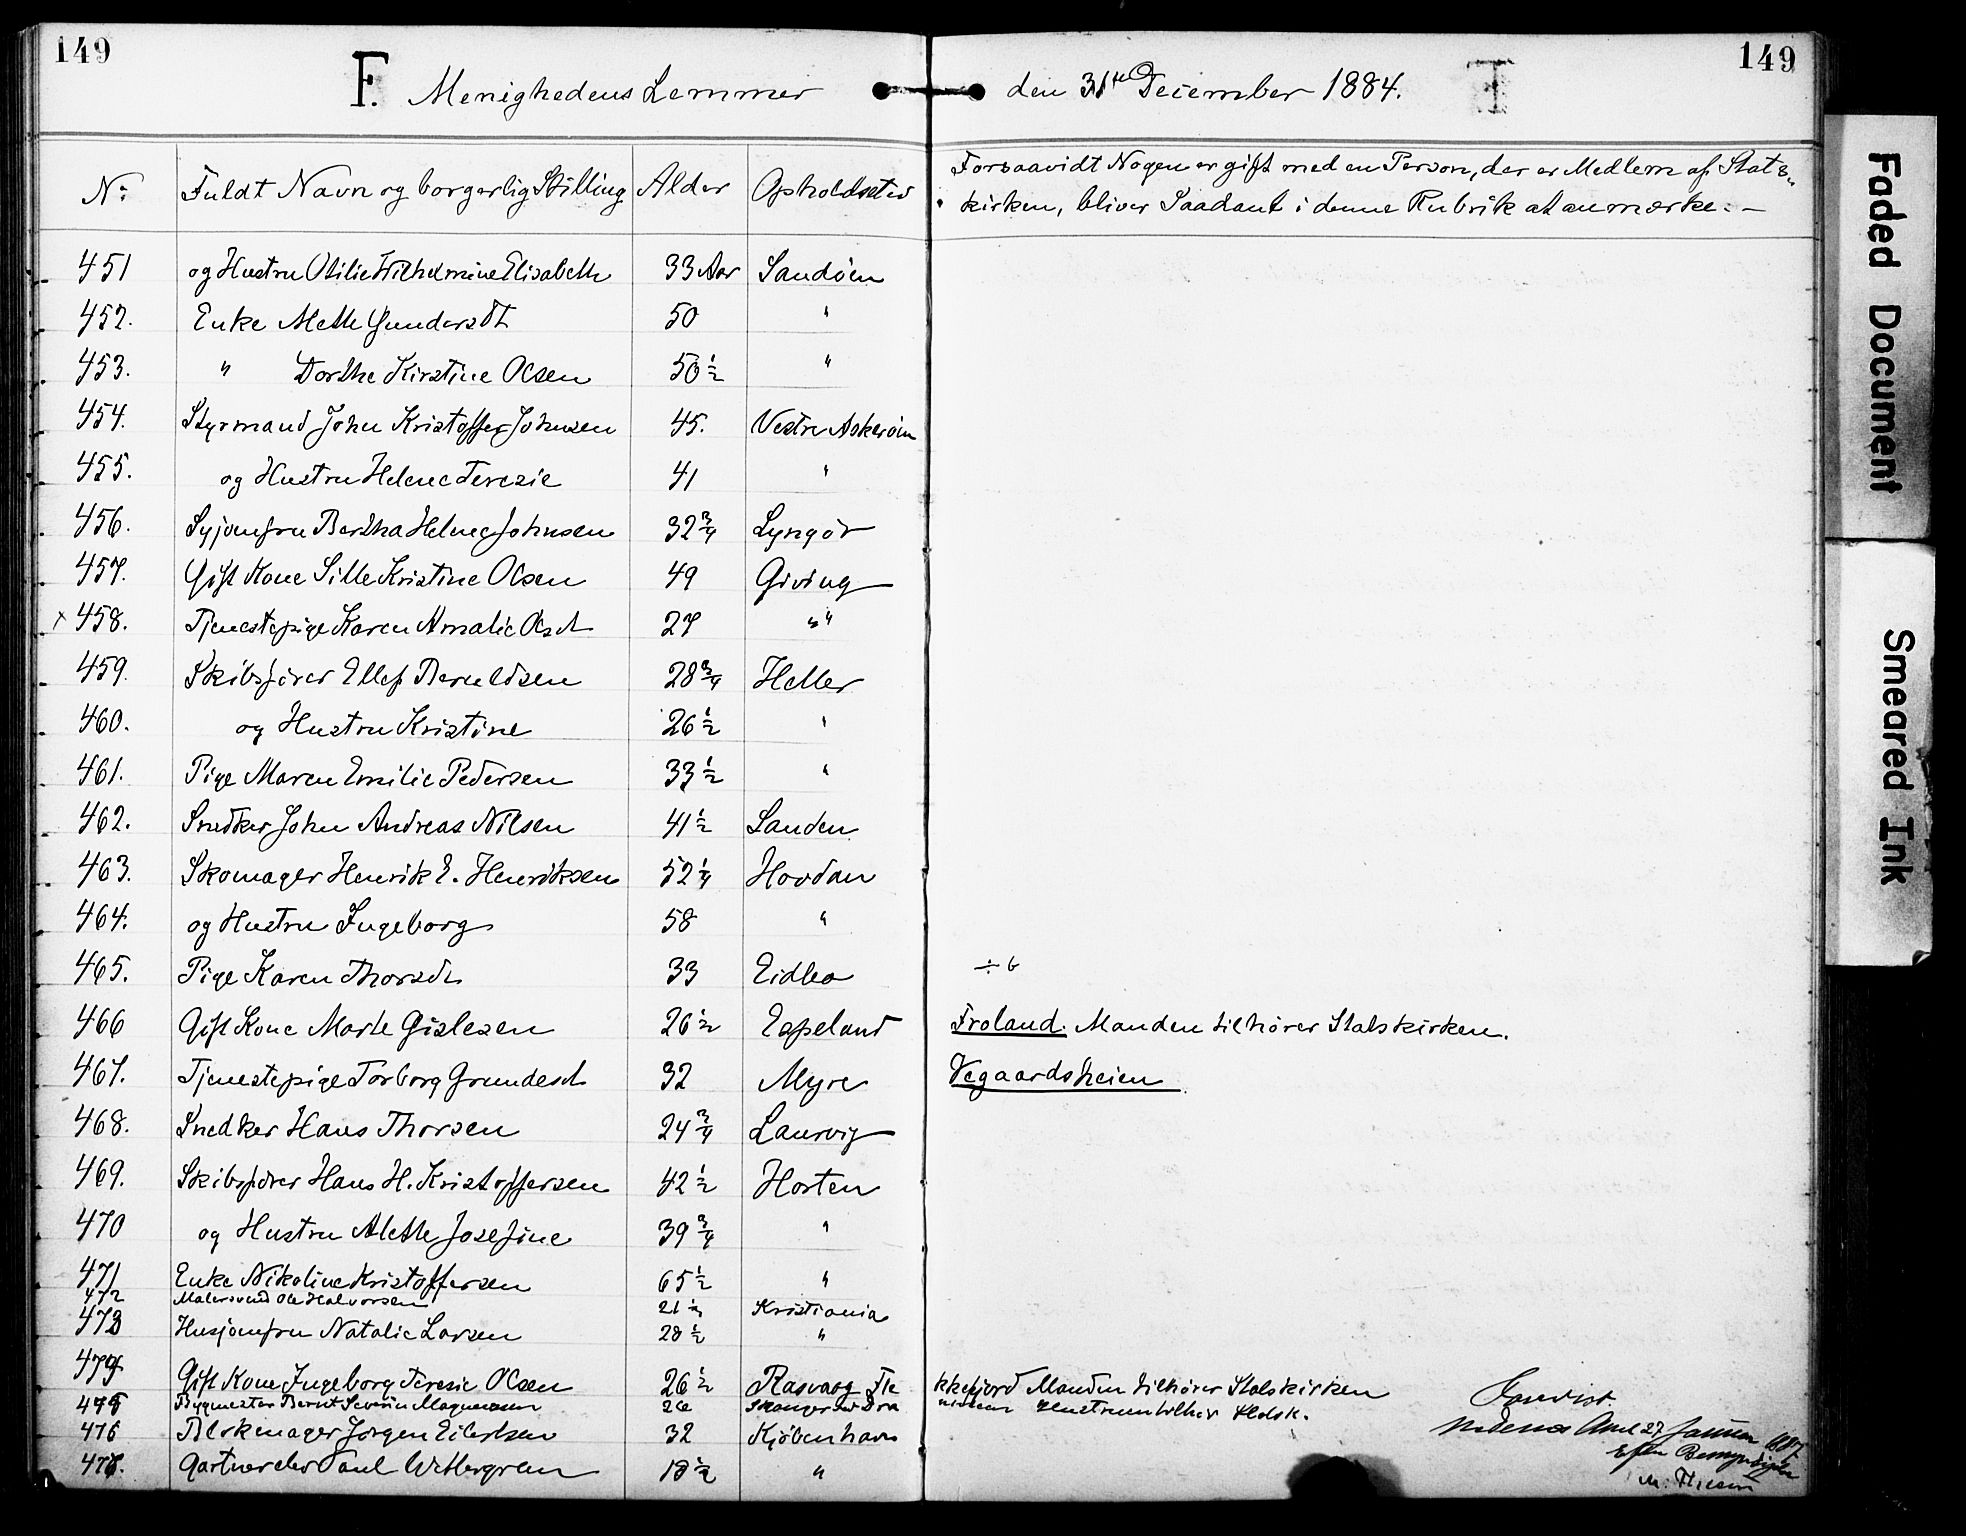 149
149
F. Menighedens Lemmer den 31te December 1884.
No Fuldt Navn og borgerlig Stilling Alder Opholdssted Forsaavidt Nogen er gift med en Person, der er Medlem af Stats-
kirken, bliver Saadant i denne Rubrik at anmærke. —
451 og Hustru Otilie Wilhelmine Elisabeth 33 Aar Sandøen
452. Enke Mette Gundersdt 50 "
453. " Dorthe Kirstine Olsen 50 1/2 "
454. Styrmand John Kristoffer Johnsen 45. Vestre Askerøen
455. og Hustru Helene Teresie 41 "
456. Syjomfru Bertha Helene Johnsen 32 3/4 Lyngør
457. Gift Kone Sille Kristine Olsen 49 Giving
x 458. Tjenestepige Karen Amalie Olsdt 27 "
459. Skibsfører Ellef Beruldsen 28 3/4 Heller
460. og Hustru Kristine 26 1/2 "
461. Pige Maren Emilie Pedersen 33 1/2 "
462. Snedker John Andreas Nilsen 41 1/2 Sanden
463. Skomager Henrik E. Henriksen 52 1/4 Hovdan
464. og Hustru Ingeborg 58 "
465. Pige Karen Thorsdt 33 Eidbo ÷ 6
466 Gift Kone Marte Gislesen 26 1/2 Espeland Froland. Manden tilhører Statskirken.
467. Tjenestepige Torborg Grundesdt 32 Myre Vegaardsheien
468. Snedker Hans Thorsen 24 3/4 Laurvig
469. Skibsfører Hans H. Kristoffersen 42 1/2 Horten
470 og Hustru Alette Josefine 39 3/4 "
471 Enke Nikoline Kristoffersen 65 1/2 "
472 Malersvend Ole Halvorsen 21 1/2 Kristiania
473 Husjomfru Natalie Larsen 28 1/2 "
474 Gift Kone Ingeborg Teresie Olsen 26 1/2 Rasvaag Flekkefjord Manden tilhører Statskirken
475 Bygmester Bernt Severin Magnussen 26
476 Blikmager Jørgen Eilertsen 32 Kjøbenhavn
477. Gartnerelev Paul Wettergreen 18 1/2 "
27 Januar
Faded Document
Smeared Ink